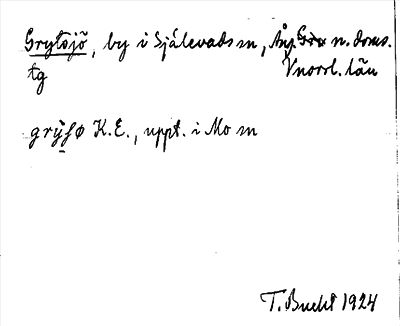 Grytsjö, by i Själevads sn, Ång. n. doms.
tg Vnorrl. län
grýʃø K.E., uppt. i Mo sn
T. Bucht 1924